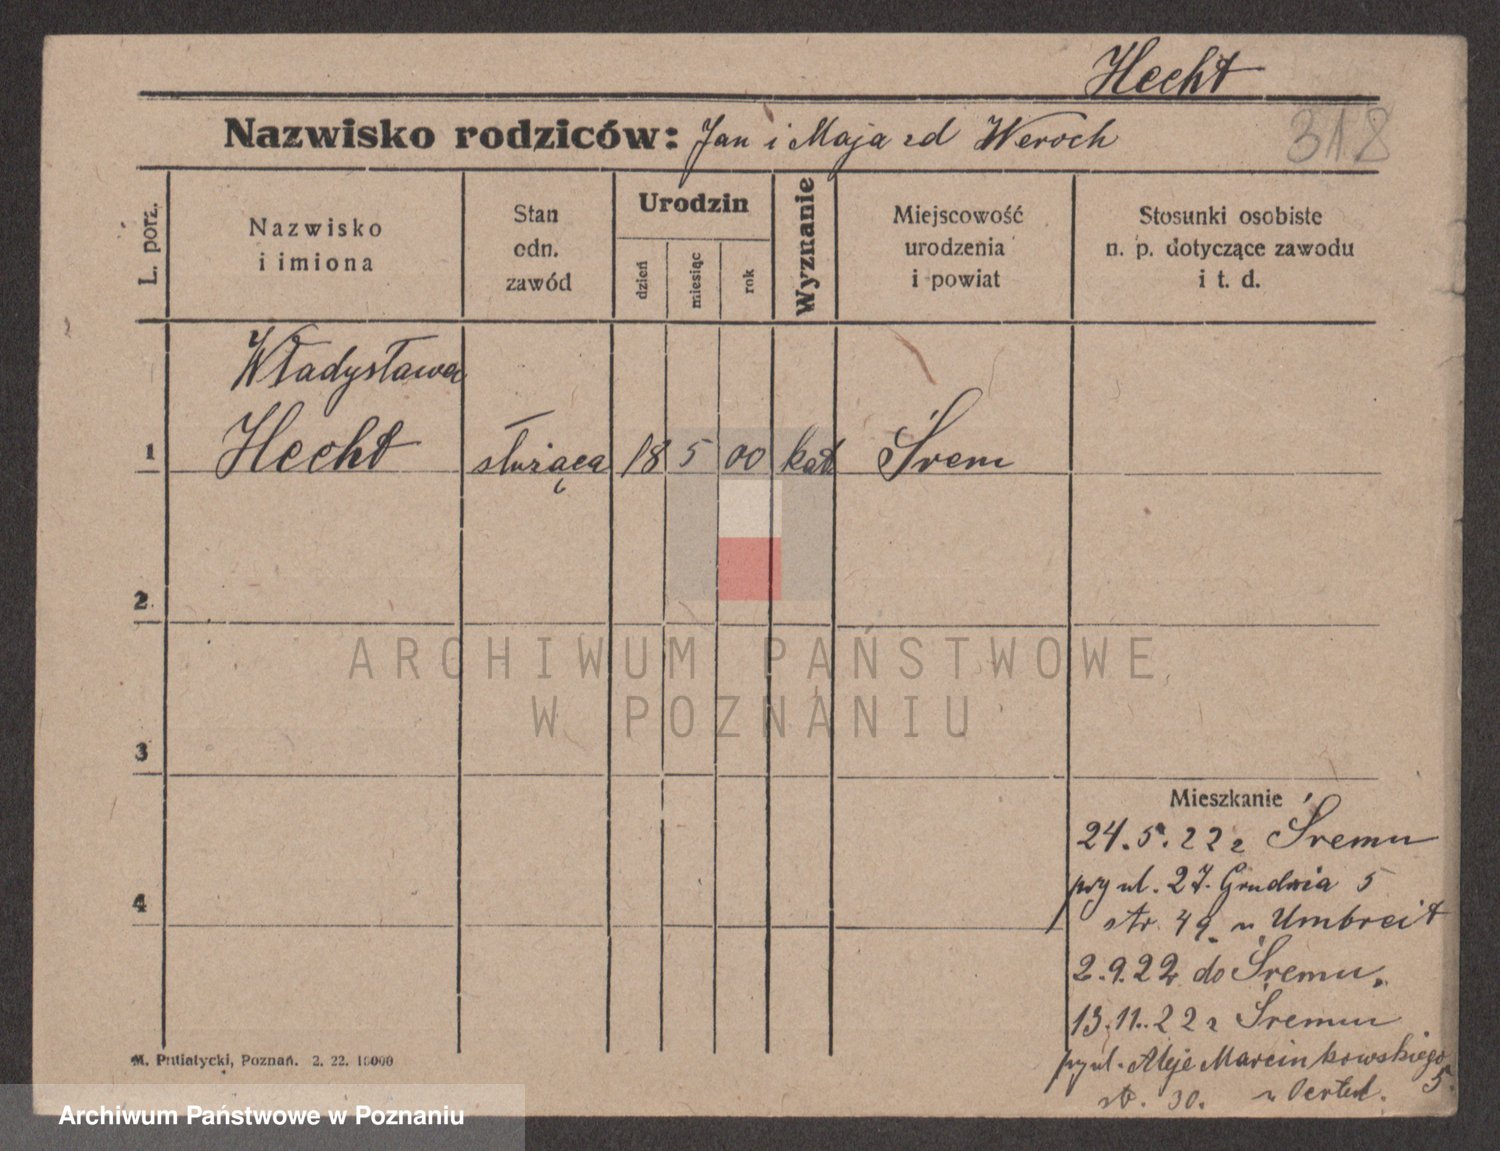 Hecht
318
Nazwisko rodziców: Jan i Maja zd Weroch
L. porz.
Nazwisko
i imiona
Stan
odn.
zawód
Urodzin
dzień
miesiąc
rok
Wyznanie
Miejscowość
urodzenia
i powiat
Stosunki osobiste
n. p. dotyczące zawodu
i t. d.
Władysława
1 Hecht służąca 18 5 00 kat Śrem
2
3
4
Mieszkanie
24.5.22 z Śremu
przy ul. 27. Grudnia 5
str 49 u Umbreit
2.9.22 do Śremu.
13.11.22 z Śremu
przy ul. Aleje Marcinkowskiego
5.
str. 30. u
M. Putiatycki, Poznań. 2. 22. 10000
ARCHIWUM PAŃSTWOWE
W POZNANIU
Archiwum Państwowe w Poznaniu